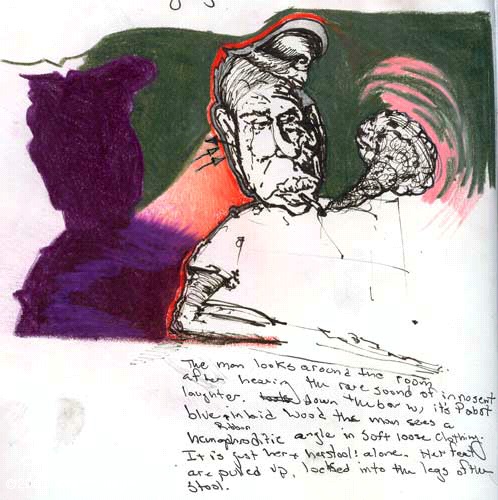 The man looks around the room
after hearing the rare sound of innosent
laughter. Down the bar w/ its Pabst
blue inlaid wood the man sees a
Ribbon
hermophroditic angle in soft loose clothing.
It is just her + her stool! alone. Her feet
are pulled up, locked into the legs of the
stool.